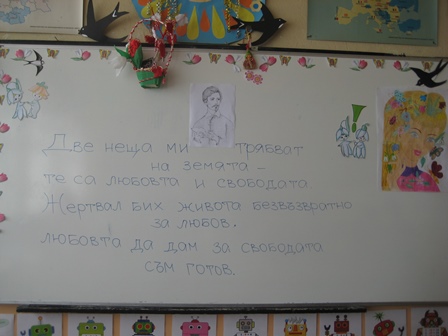 Две неща ми трябват
на земята –
те са любовта и свободата
Жертвал бих живота безвъзвратно
за любов.
любовта да дам за свободата
съм готов.